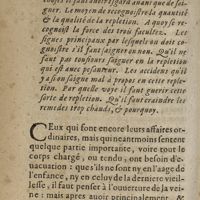 choses il faut auoir esgard auant que de soi-
gner. Le moyen de recognoistre la repletion
& la qualité de la repletion. A quoy se re-
cognoist la force des trois facultez. Les
signes principaux par lesquels on doit co-
gnoistre s'il faut saigner ou non. Qu'il ne
faut pas tousiours saigner en la repletion
qui est auec pesanteur. Les accidens qu'il
y a si on saigne mal à propos en cette reple-
tion. Par quelle voye il faut guerir cette
sorte de repletion. Qu'il faut craindre les
remedes trop chauds, & pourquoy.
CEux qui font encore leurs affaires or-
dinaires, mais qui neantmoins sentent
quelque partie importante, voire tout le
corps chargé, ou tendu, ont besoin d'e-
uacuation: que s'ils ne sont ny en l'aage de
l'enfance, ny en celuy de la derniere vieil-
lesse, il faut penser à l'ouuerture de la vei-
ne: mais apres auoir principalement, &